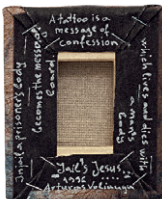 A tattoo is a
message of
confession
which lives and dies with
a man's
body
"Jail's Jesus"
1996
Arturas Valiauga
In jail a prisoner's body
becomes the message
board